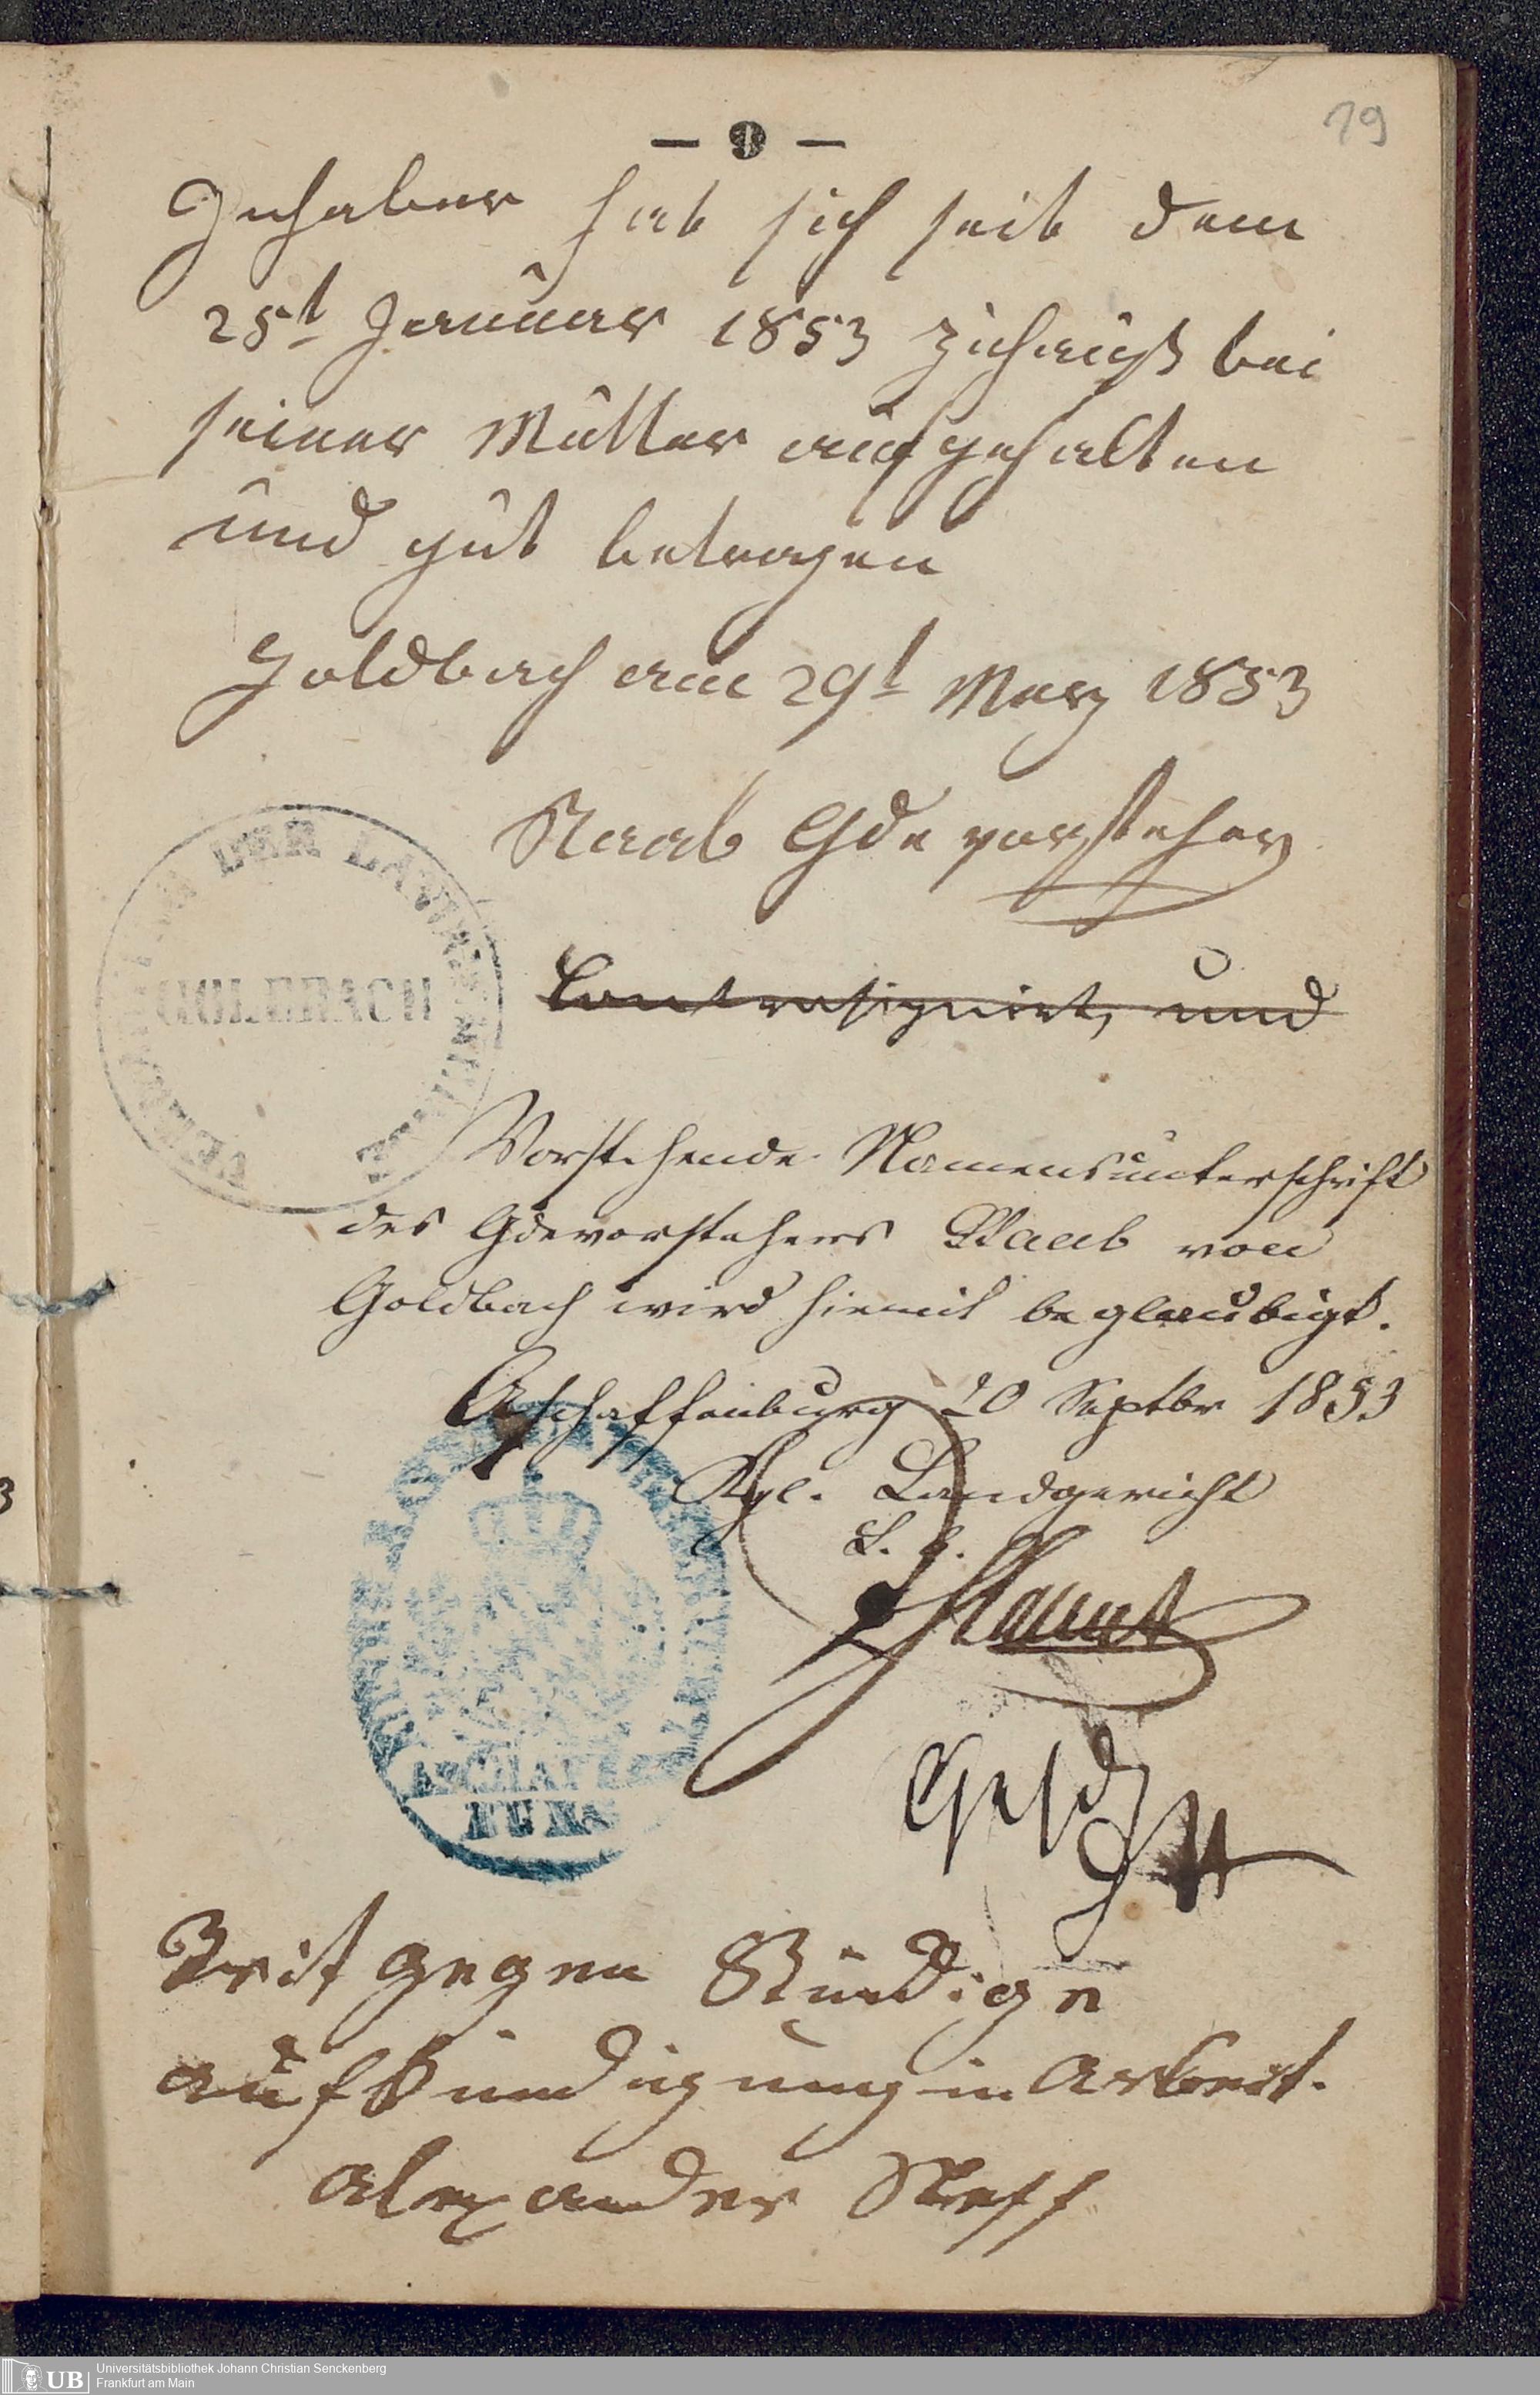 19
— 9 —
Inhaber hat sich seit dem
25t Januar 1853 zuhauß bei
seiner Mutter aufgehalten
und gut betragen
Goldbach am 29t Merz 1853
Raab Gde vorsteher
DER LANDGEMEINDE
GOLDBACH
Contrasignirt, und
Vorstehende Namensunterschrift
des Gdevorstehers Raab von
Goldbach wird hiemit beglaubigt.
Aschaffenburg 20 Septbr 1853
Kgl. Landgericht
ASCHAFFENBURG
Steht gegen
aufkündigung in Arbeit.
Alexander
Universitätsbibliothek Johann Christian Senckenberg
UB Frankfurt am Main